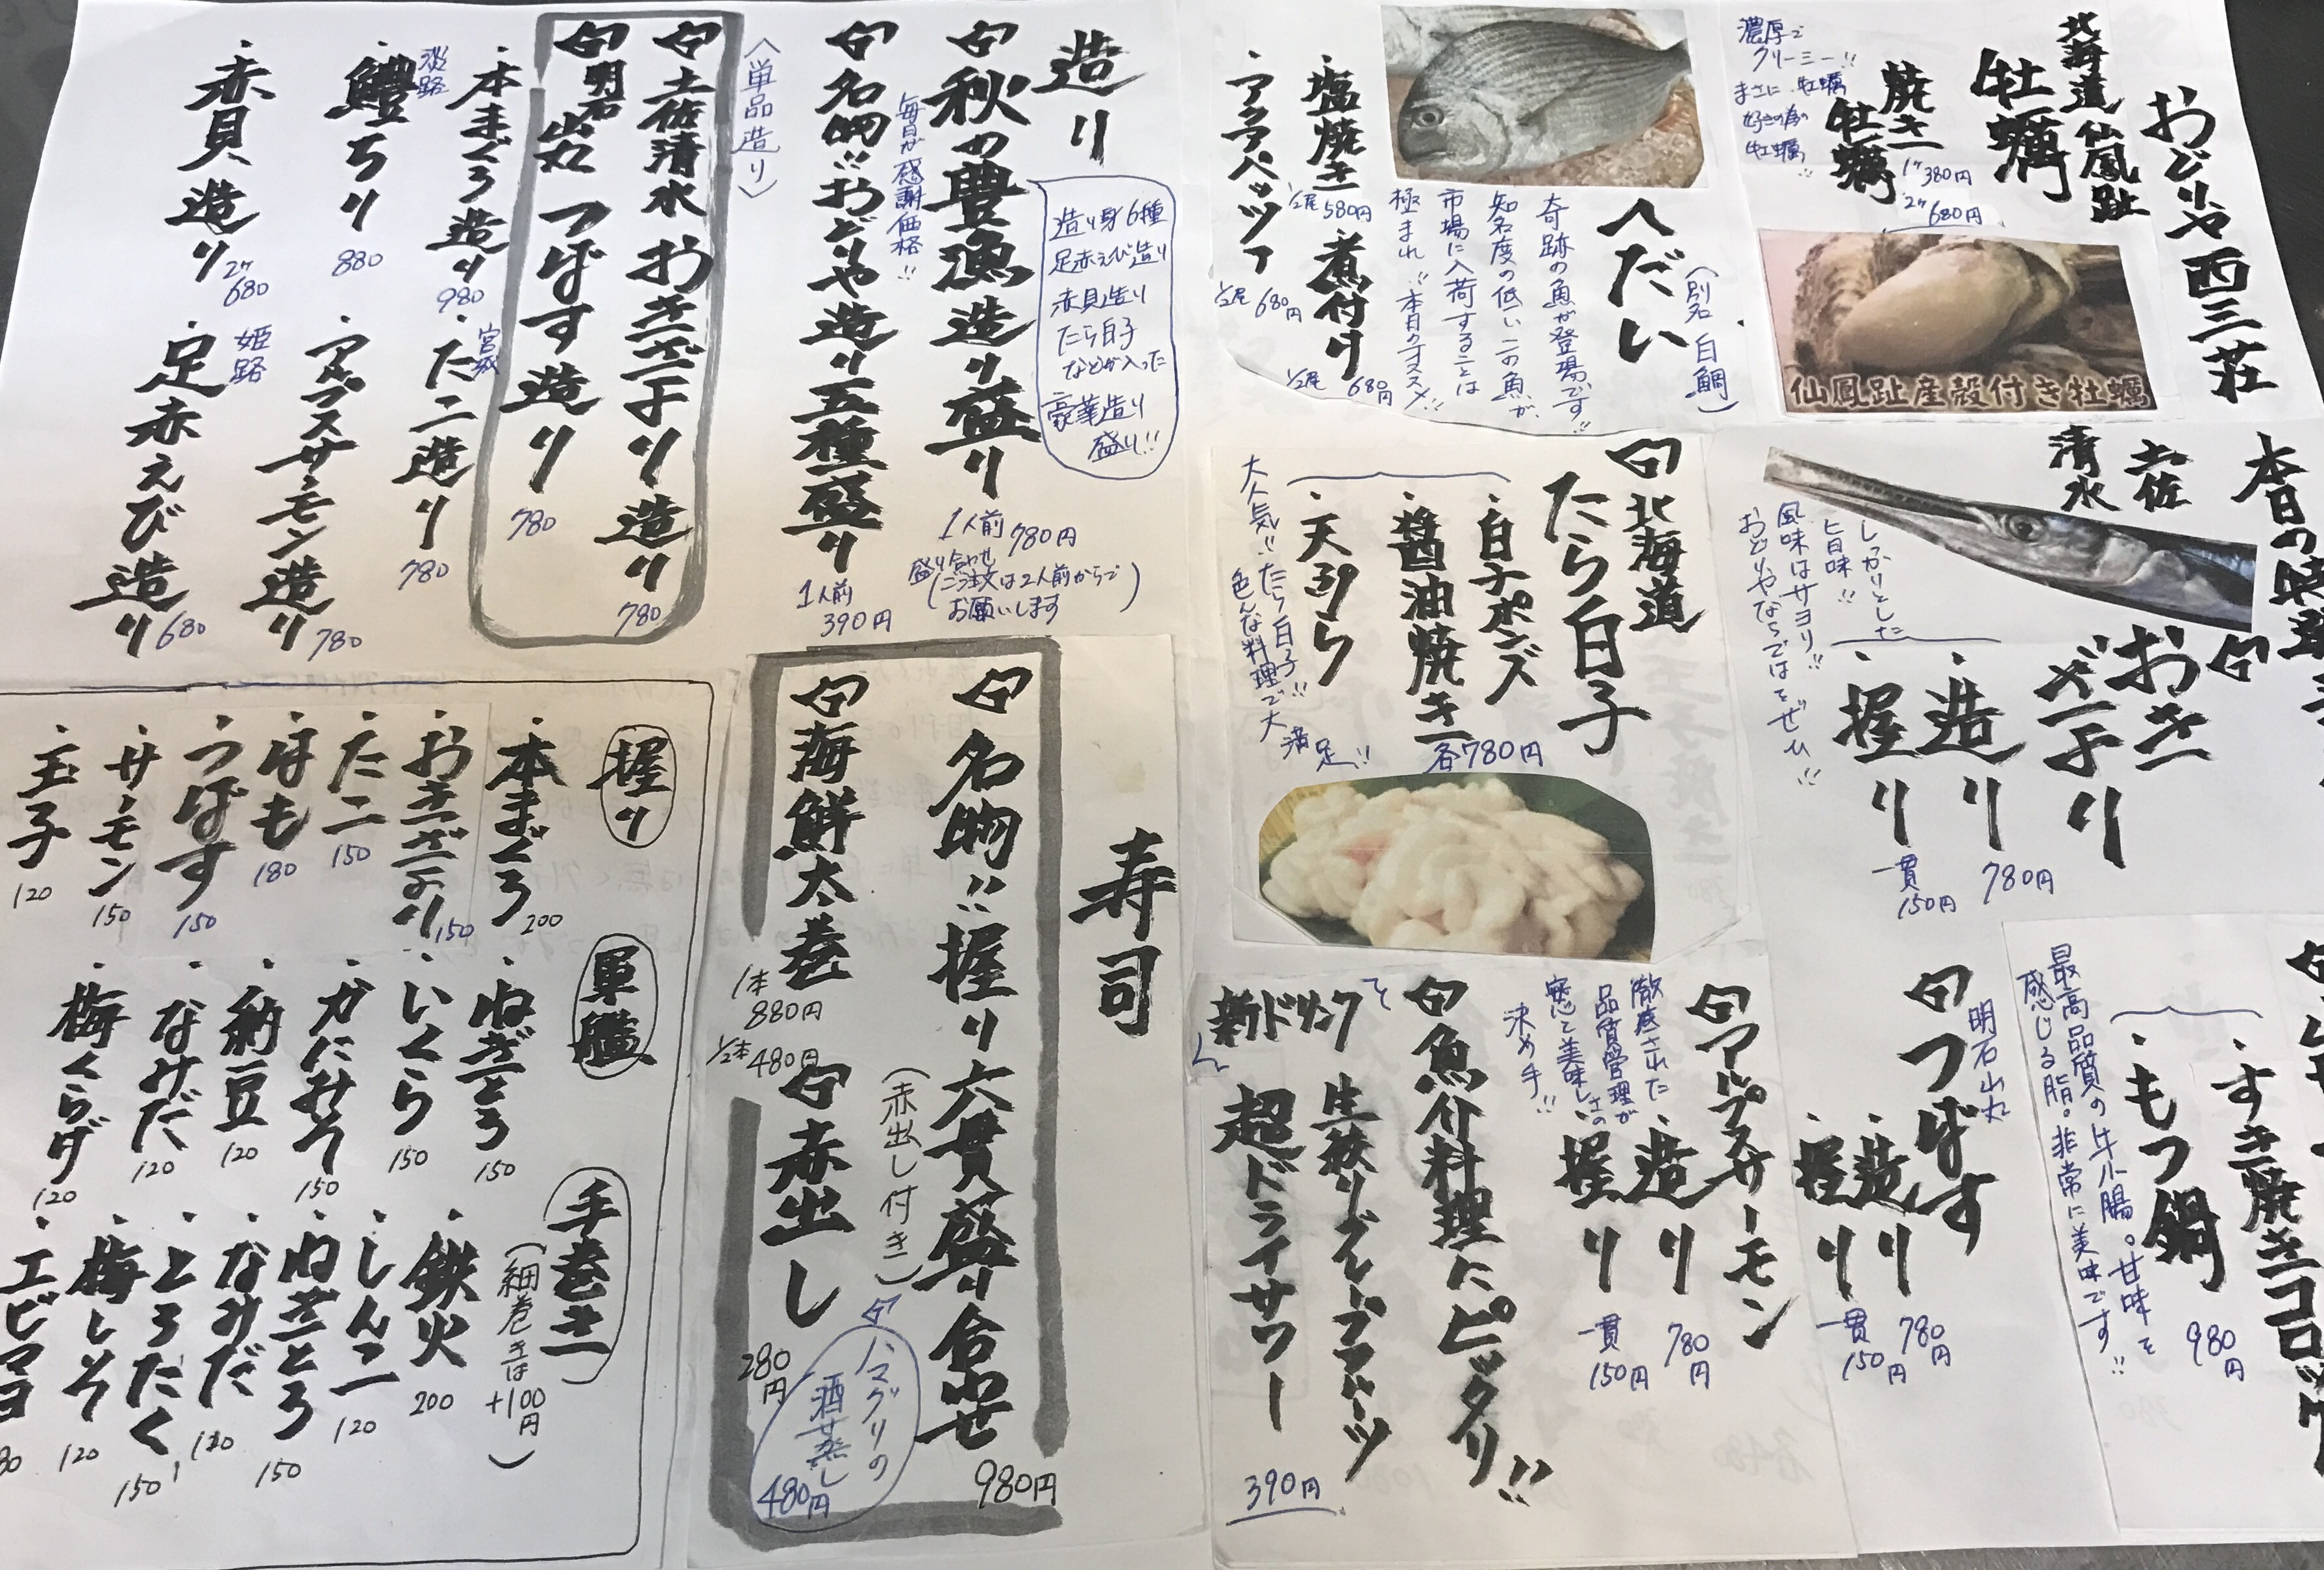 おどりや西三荘
北海道仙鳳趾
牡蠣
焼き牡蠣
1ヶ380円
2ヶ680円
濃厚で
クリーミー!!
まさに牡蠣
好きの為の
牡蠣!!
仙鳳趾産殻付き牡蠣
へだい
(別名 白鯛)
奇跡の魚が登場です!!
知名度の低いこの魚が、
市場に入荷することは
極まれ!!本日のオススメ!!
・塩焼き
1/2尾 580円
煮付け
1/2尾 680円
・アクアパッツァ
1/2尾 680円
本日の
土佐
清水
おきざより
・造り
780円
・握り
一貫
150円
しっかりとした
旨味!!
風味はサヨリ!!
おどりやならではをぜひ!!
北海道
たら白子
・白子ポンズ
・醤油焼き
・天ぷら
各780円
大人気!!たら白子!!
色んな料理で大満足!!
・すき焼きコロッケ
・もつ鍋
980円
最高品質の牛小腸。甘味を
感じる脂。非常に美味です!!
明石山丸
つばす
・造り
780円
・握り
一貫
150円
アルプスサーモン
・造り
780円
・握り
一貫
150円
徹底された
品質管理が
安心と美味しさの
決め手!!
魚介料理にピッタリ!!
新ドリンク
生搾りグレープフルーツ
超ドライサワー
390円
造り
造り身6種
足赤えび造り
赤貝造り
たら白子
などが入った
豪華造り
盛り!!
秋の豊漁造り盛り
1人前 780円
盛り合わせ
(ご注文は2人前からで
お願いします)
毎日が感謝価格!!
名物!!おどりや造り五種盛り
1人前
390円
<単品造り>
土佐清水 おきざより造り
780
明石山丸 つばす造り
780
・本まぐろ造り
980
宮城
・たこ造り
780
淡路
・鱧ちり
880
・アルプスサーモン造り
780
・赤貝造り
2ヶ
680
姫路
・足赤えび造り
680
寿司
名物!!握り六貫盛り合わせ
(赤出し付き)
980円
海鮮太巻
1本
880円
1/2本
480円
赤出し
280円
ハマグリの
酒せ蒸し
480円
握り
・本まぐろ
200
・おきざより
150
・たこ
150
・はも
180
・つばす
150
・サーモン
150
・玉子
120
軍艦
・ねぎとろ
150
・いくら
150
・カニみそ
150
・納豆
120
・なみだ
120
・梅くらげ
120
手巻き
(細巻きは
+100円)
・鉄火
200
・しんこ
120
・ねぎとろ
150
・なみだ
120
・とろたく
150
・梅しそ
120
・エビマヨ